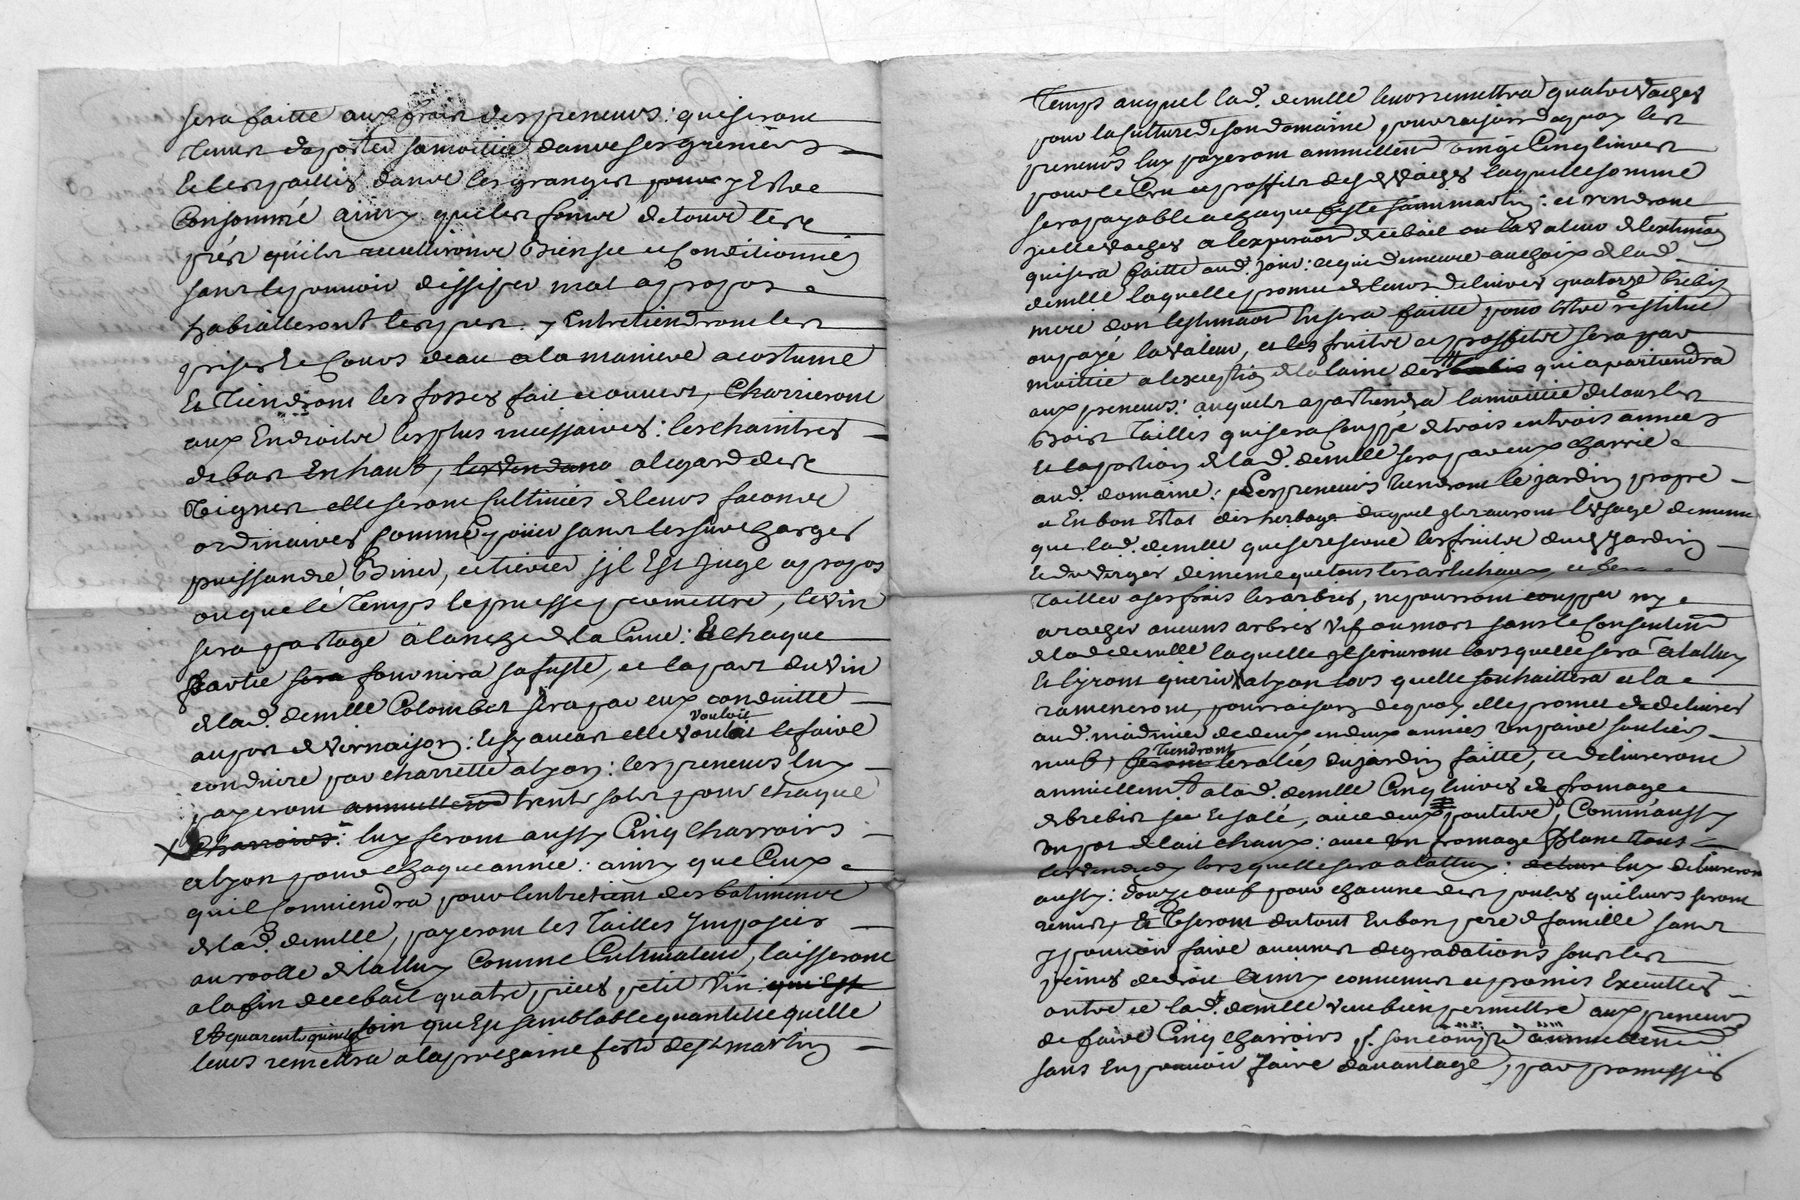 sera faitte aux frais des preneurs : qui seront
tenus de porter sa moitié dans ses greniers
Et les pailles dans les granges pour y Estre
Consommé ainsy que les foins de tous les
prés qu'ils recueilliront Bien sec et Conditionnés
sans le pouvoir dissiper mal a propos
habialleront les prés, y Entretiendront les
prises Et Cours deau a la maniere acostumé
Et Tiendront les fossés fait et ouvert, Charrieront
aux Endroits les plus necessaires : les chaintres
de bas En haut, a legard des
Vignes elle seront Cultivées de leurs façons
ordinaires Comme sans les surcharger
puissandre Biner, et tiercer sjl Est jugé a propos
ou que le Temps le puisse permettre, le vin
sera partagé à lanche de la Cuve : Et chaque
partie fournira sa fuste, et la part du vin
de lad. demlle Colombet sera par eux conduitte
au port de Vernaison : Et sy au cas elle vouloit le faire
conduire par charrette a lyon : les preneurs luy
payeront annuellemt trente sols pour chaque
charrois : luy feront aussy Cinq Charrois
a lyon pour chaque année : ainsy que Ceux
quil Conviendra pour lentretient des batiments
de lad. demlle, payeront les Tailles Imposées
au roolle de tallux Comme Cultivateur, laisseront
a la fin de ce bail quatre pieces petit vin qui Est
Et quarente quinq foin que Est semblable quantité quelle
leurs remettra a la prochaine feste de st martin
Temps auquel lad. demlle leurs remettra quatre vaches
pour la Culture de son domaine, pour raison de quoy les
preneurs luy payeront annuellemt vingt Cinq livres
pour le Cru et proffits desd. vaches laquelle somme
sera payable a chaque feste saint martin : et rendront
jcelle vaches a lexpiraon de ce bail ou la valeur de lestimaon
qui sera faitte aud. jour : ce qui demeure au choix de lad.
demlle laquelle promet de leurs delivrer quatorze brebis
mere dont lestimaon En sera faitte pour Estre restitué
ou payé la valeur, et les fruits et proffits sera par
moittié a lexception de la laine des brebis qui apartiendra
aux preneurs : auquels apartiendra la moittié de tous les
Bois Tailles qui sera Couppé de trois en trois années
Et la portion de lad. demlle sera par eux charrié
aud. domaine : Les preneurs tiendront le jardin propre
Et En bon Estat des herbage duquel jls auront lusage de meme
que lad. demlle qui se reserve les fruits dud. jardin
Et du verger de meme que tous les artichaux, et fera
tailler a ses frais les arbres, ne pourront coupper ny
aracher aucuns arbres vif ou mort sans le Consentemt
de lad. demlle laquelle jls serviront lors quelle sera a tallux
Et lyront querir a lyon lors quelle souhaittera et la
rameneront, pour raison de quoy elle promet de delivrer
de deux en deux années un paire souliers
neuf, tiendront les alées du jardin faitte, et delivreront
annuellemt a lad. demlle Cinq livres de fromage
de brebis sec Et salé, avec deux poulets, Comme aussy
un pot de lait chaux : avec un fromage Blanc tous
les vendredy lors quelle sera a tallux : luy delivreront
aussy : douze œuf pour chacune des poules qui leurs seront
remises, Et Useront du tout En bon pere de famille sans
y pouvoir faire aucunes degradations sous les
peines de droit Ainsy convenu et promis Executter
outre ce lad. demlle veut bien permettre aux preneurs
de faire Cinq charrois p. son compte annuellemt
sans En pouvoir faire davantage, par promesses